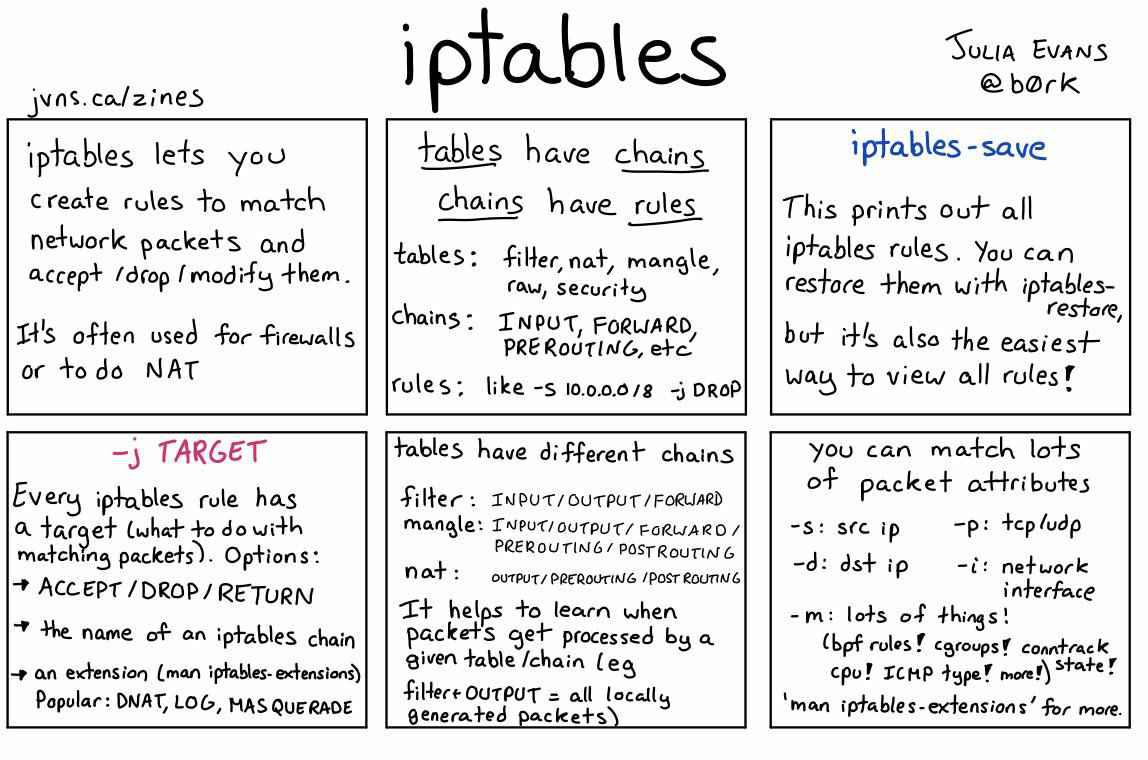 iptables
JULIA EVANS
@b0rk
jvns.ca/zines
iptables lets you
create rules to match
network packets and
accept /drop/modify them.
It's often used for firewalls
or to do NAT
tables have chains
chains have rules
tables: filter, nat, mangle,
raw, security
chains: INPUT, FORWARD,
PREROUTING, etc
rules: like -s 10.0.0.0/8 -j DROP
iptables-save
This prints out all
iptables rules. You can
restore them with iptables-
restore,
but it's also the easiest
way to view all rules!
-j TARGET
Every iptables rule has
a target (what to do with
matching packets). Options:
→ ACCEPT/DROP/RETURN
→ the name of an iptables chain
→ an extension (man iptables-extensions)
Popular: DNAT, LOG, MASQUERADE
tables have different chains
filter: INPUT/OUTPUT/FORWARD
mangle: INPUT/OUTPUT/FORWARD/
PREROUTING/POSTROUTING
nat: OUTPUT/PREROUTING/POSTROUTING
It helps to learn when
packets get processed by a
given table/chain (eg
filter+OUTPUT = all locally
generated packets)
you can match lots
of packet attributes
-s: src ip -p: tcp/udp
-d: dst ip -i: network
interface
-m: lots of things!
(bpf rules! cgroups! conntrack
state!
cpu! ICMP type! more!)
'man iptables-extensions' for more.